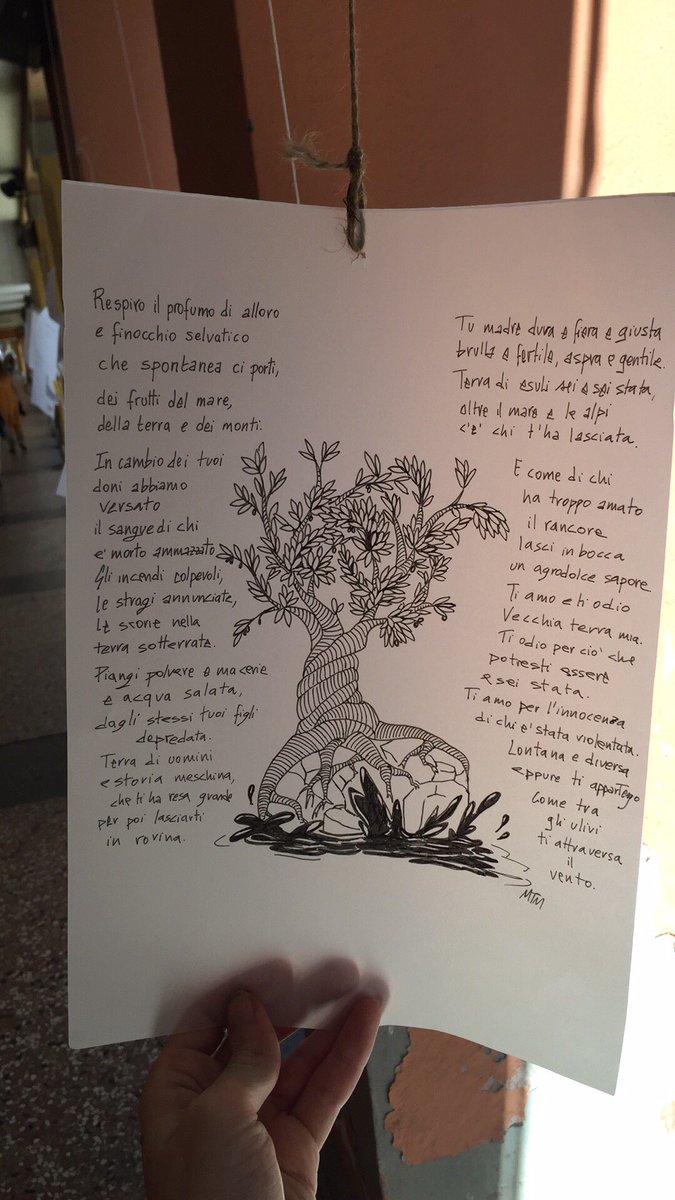 Respiro il profumo di alloro
e finocchio selvatico
che spontanea ci porti,
dei frutti del mare,
della terra e dei monti.
In cambio dei tuoi
doni abbiamo
versato
il sangue di chi
e' morto ammazzato
Gli incendi colpevoli,
le stragi annunciate,
le scorie nella
terra sotterrate.
Piangi polvere e macerie
e acqua salata,
dagli stessi tuoi figli
depredata.
Terra di uomini
e storia meschina,
che ti ha resa grande
per poi lasciarti
in rovina.
Tu madre dura e fiera e giusta
brulla e fertile, aspra e gentile.
Terra di esuli sei e sei stata,
oltre il mare e le alpi
c'e' chi t'ha lasciata.
E come di chi
ha troppo amato
il rancore
lasci in bocca
un agrodolce sapore
Ti amo e ti odio
Vecchia terra mia.
Ti odio per cio' che
potresti essere
e sei stata.
Ti amo per l'innocenza
di chi e' stata violentata.
Lontana e diversa
eppure ti appartengo
Come tra
gli ulivi
ti attraversa
il
vento.
MTM